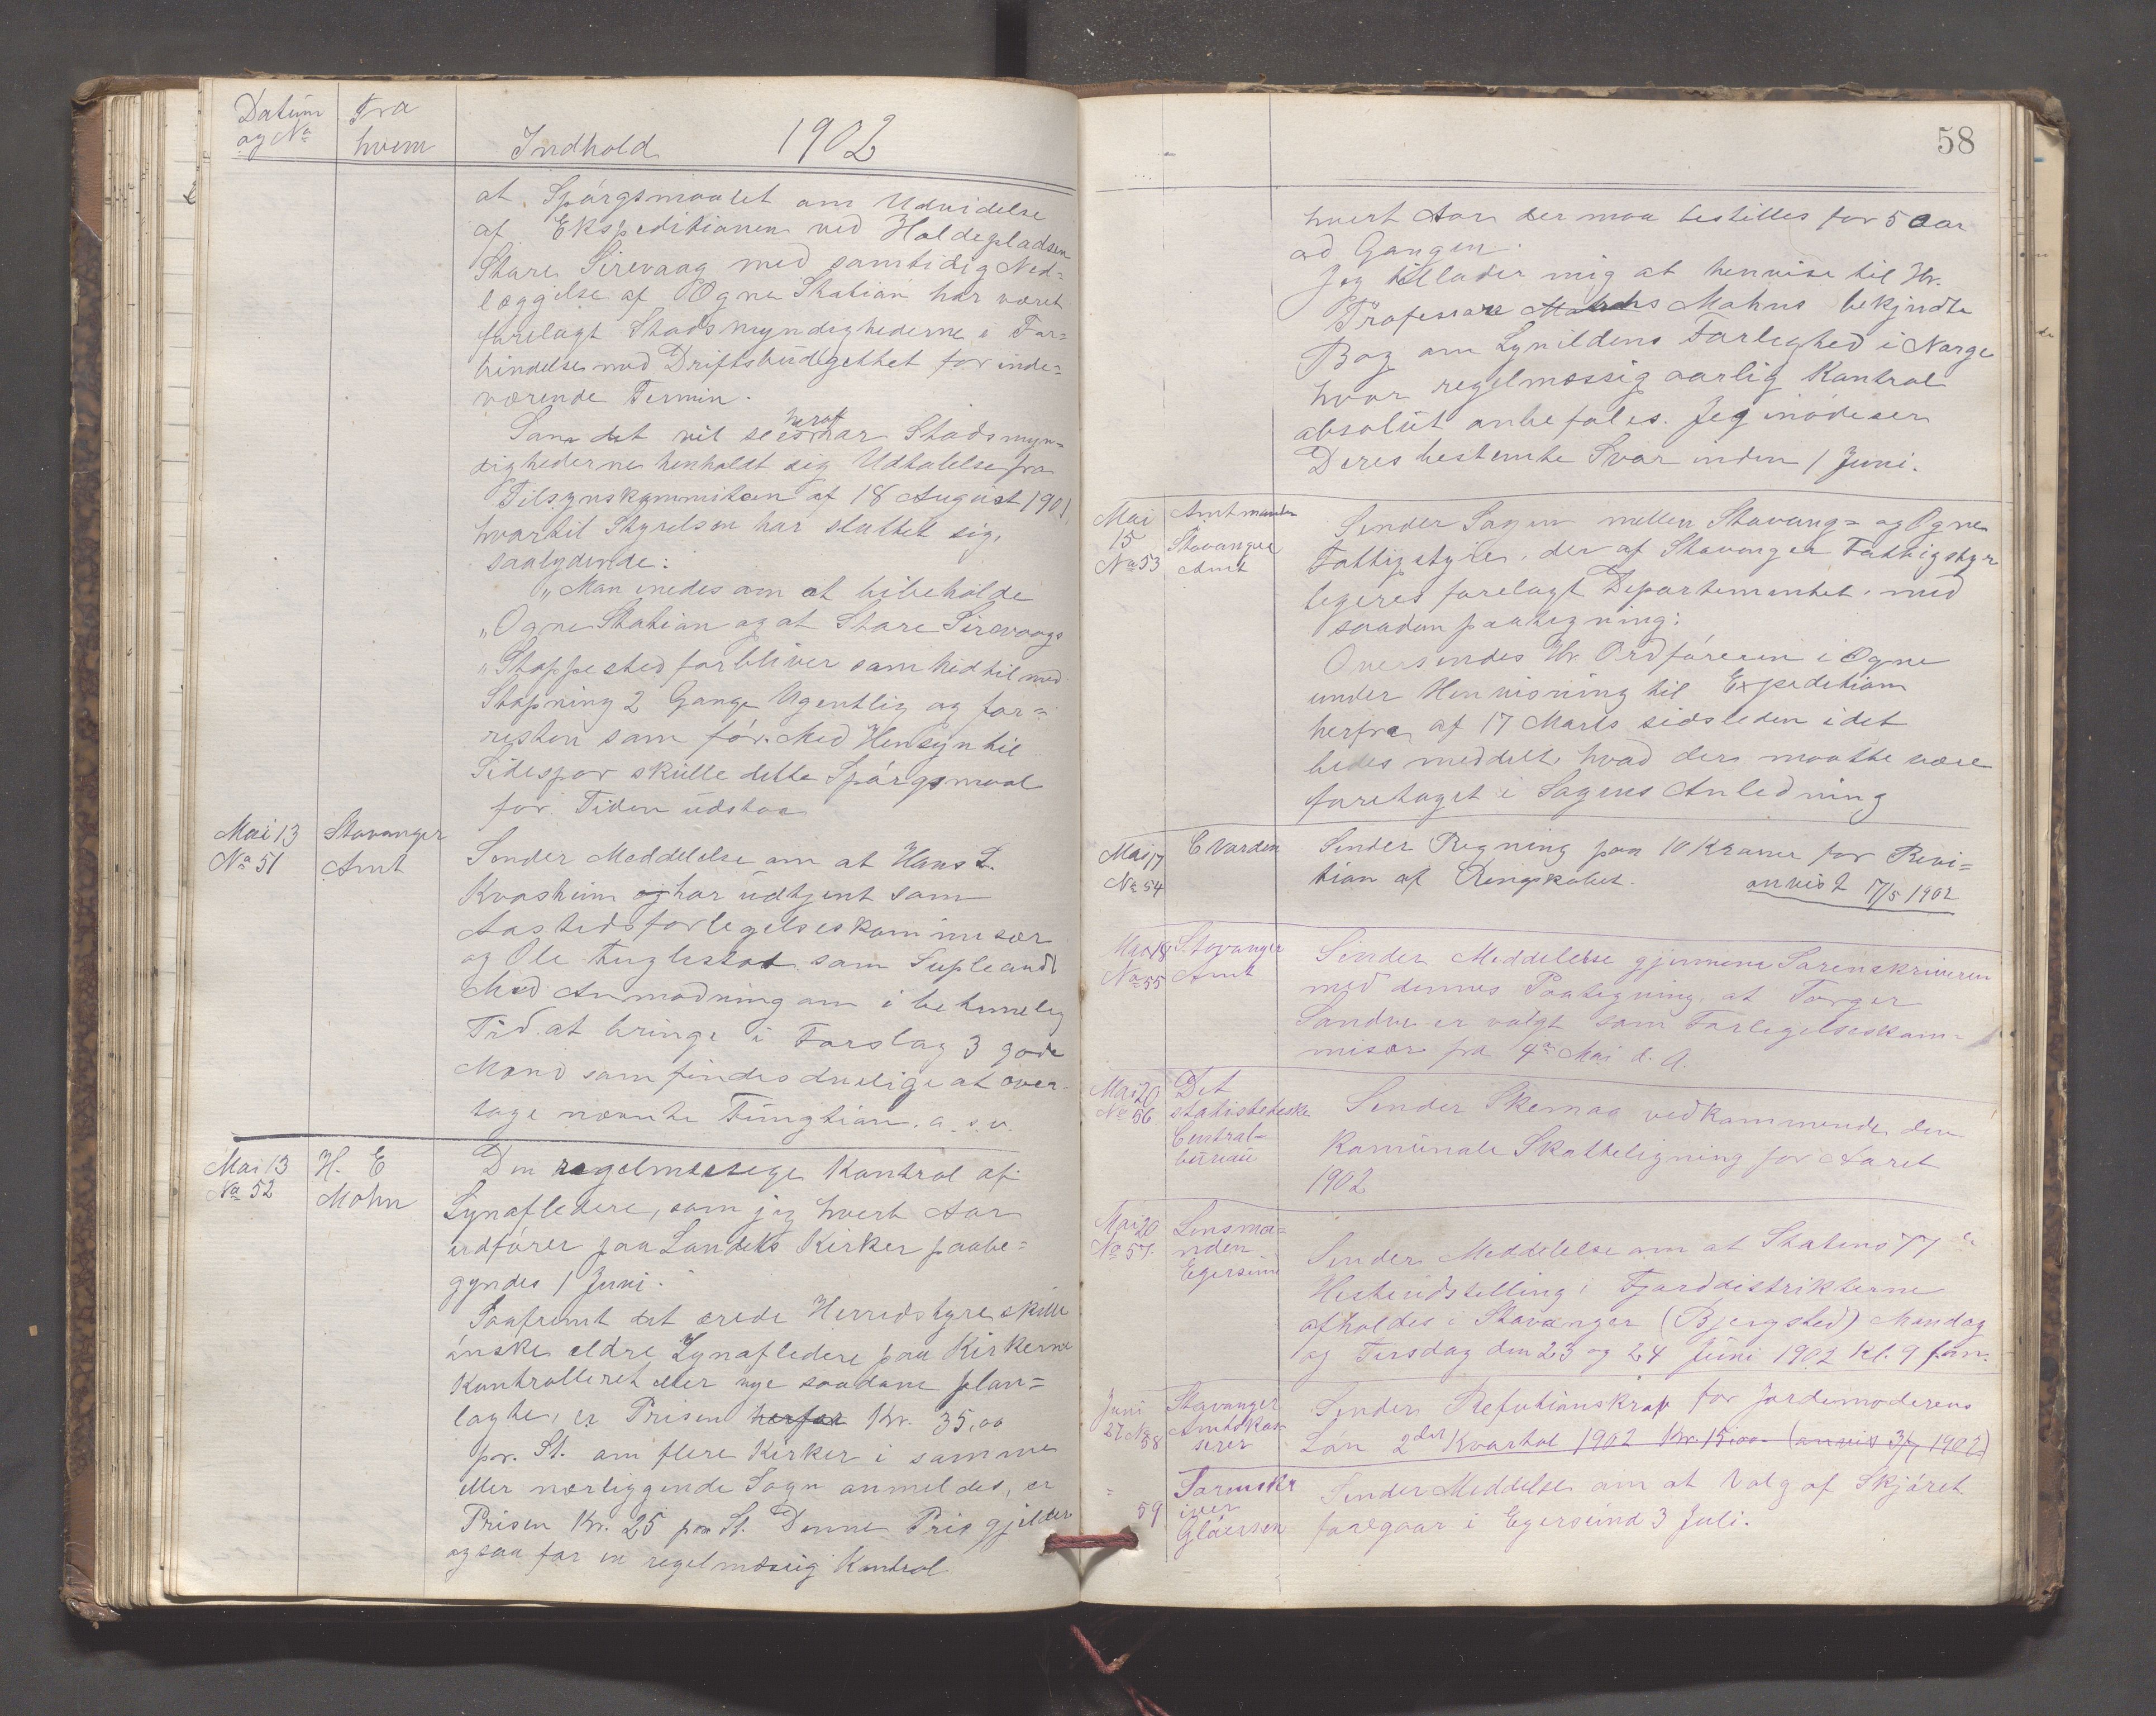 Datum og No
Fra hvem
Indhold 1902
at Spórgsmaalet om Udvidelse
af Ekspeditionen ved Holdepladsen
Stare Sirevaag med samtidig Ned-
læggelse af Ogne Station har været
forelagt Stadsmyndighederne i For-
bindelse med Driftsbudgettet for inde-
værende Termin.
Som det vil sees heraf har Stadsmyn-
dighederne henholdt sig Udtalelse fra
Tilsynskommiteen af 18 August 1901
hvortil Styrelsen har sluttet sig,
saalydende:
"Man enedes om at bibeholde
"Ogne Station og at Stare Sirevaags
"Stoppested forbliver som hidtil med
Stopning 2 Gange Ugentlig og for-
resten som fór. Med Hensyn til
Sidespor skulle dette Spórgsmaal
for Tiden udstaa
Mai 13
No 51
Stavanger
Amt
Sender Meddelelse om at Hans L.
Kvasheim og har udtjent som
Aastedsforlegelseskommisær
og Ole Fuglestad som Supleandt
Med Anmodning om i betimelig
Tid at bringe i Forslag 3 gode
Mænd som findes duelige at over-
tage nævnte Fungtion. o. s. v.
Mai 13
No 52
H. E
Mohn
Den regelmessige Kontrol af
Lynafledere, som jeg hvert Aar
udfórer paa Landets Kirker paabe-
gyndes 1 Juni.
Saafremt det ærede Herredstyre skulle
ónske ældre Lynafledere paa Kirkerne
Kontrolleret eller nye saadane plan-
lagte, er Prisen herfor Kr. 35,00
pr. St. om flere Kirker i samme
eller nærliggende Sogn anmeldes, er
Prisen Kr. 25 pr St. Denne Pris gjelder
ogsaa for en regelmæssig Kontrol
58
hvert Aar der maa bestilles for 5 Aar
ad Gangen.
Jeg tillader mig at henvise til Hr.
Professor Mohns bekjendte
Bog om Lynildens Farlighed i Norge
hvor regelmæssig aarlig Kontrol
absolut anbefales. Jeg imódeser
Deres bestemte Svar inden 1 Juni.
Mai
15
No 53
Amtmanden
Stavanger
Amt
Sender Sagen mellem Stavang- og Ogne
Fattigstyre, der af Stavanger Fattigstyre
begeres forelagt Departementet. med
saadan paategning:
Oversendes Hr. Ordfóreren i Ogne
under Henvisning til Expedition
herfra af 17 Marts sidsleden idet
bedes meddelt hvad der maatte være
foretaget i Sagens Anledning
Mai 17
No 54
E Varden
Sender Regning paa 10 Kroner for Revi-
tion af Regnskabet.
anvist 17/5 1902
Mai 18
No 55
Stavanger
Amt
Sender Meddelelse gjennem Sorenskriveren
med dennes Paategning, at Torger
Sandve er valgt som Forlegelseskom-
misær fra 4de Mai d. A.
Mai 20
No 56
Det
statistiske
Central-
bureau
Sender Skemaa vedkommende den
Komunale Skatteligning for Aaret
1902
Mai 20
No 57.
Lensma-
nden
Egersund
Sender Meddelelse om at Statens 77 de
Hesteudstilling i Fjorddistrikterne
afholdes i Stavanger (Bjergsted) Mandag
og Tirsdag den 23 og 24 Juni 1902 Kl. 9 form.
Juni
27 No
58
Stavanger
Amtskas-
serer
Sender Refutionskrav for Jordemoderens
Lón 2det Kvartal 1902 Kr. 15.00 (anvis 3/7 1902)
"
59
Sorenskr
iver
Gloersen
Sender Meddelse om at Valg af Skjóret
foregaar i Egersund 3 Juli.